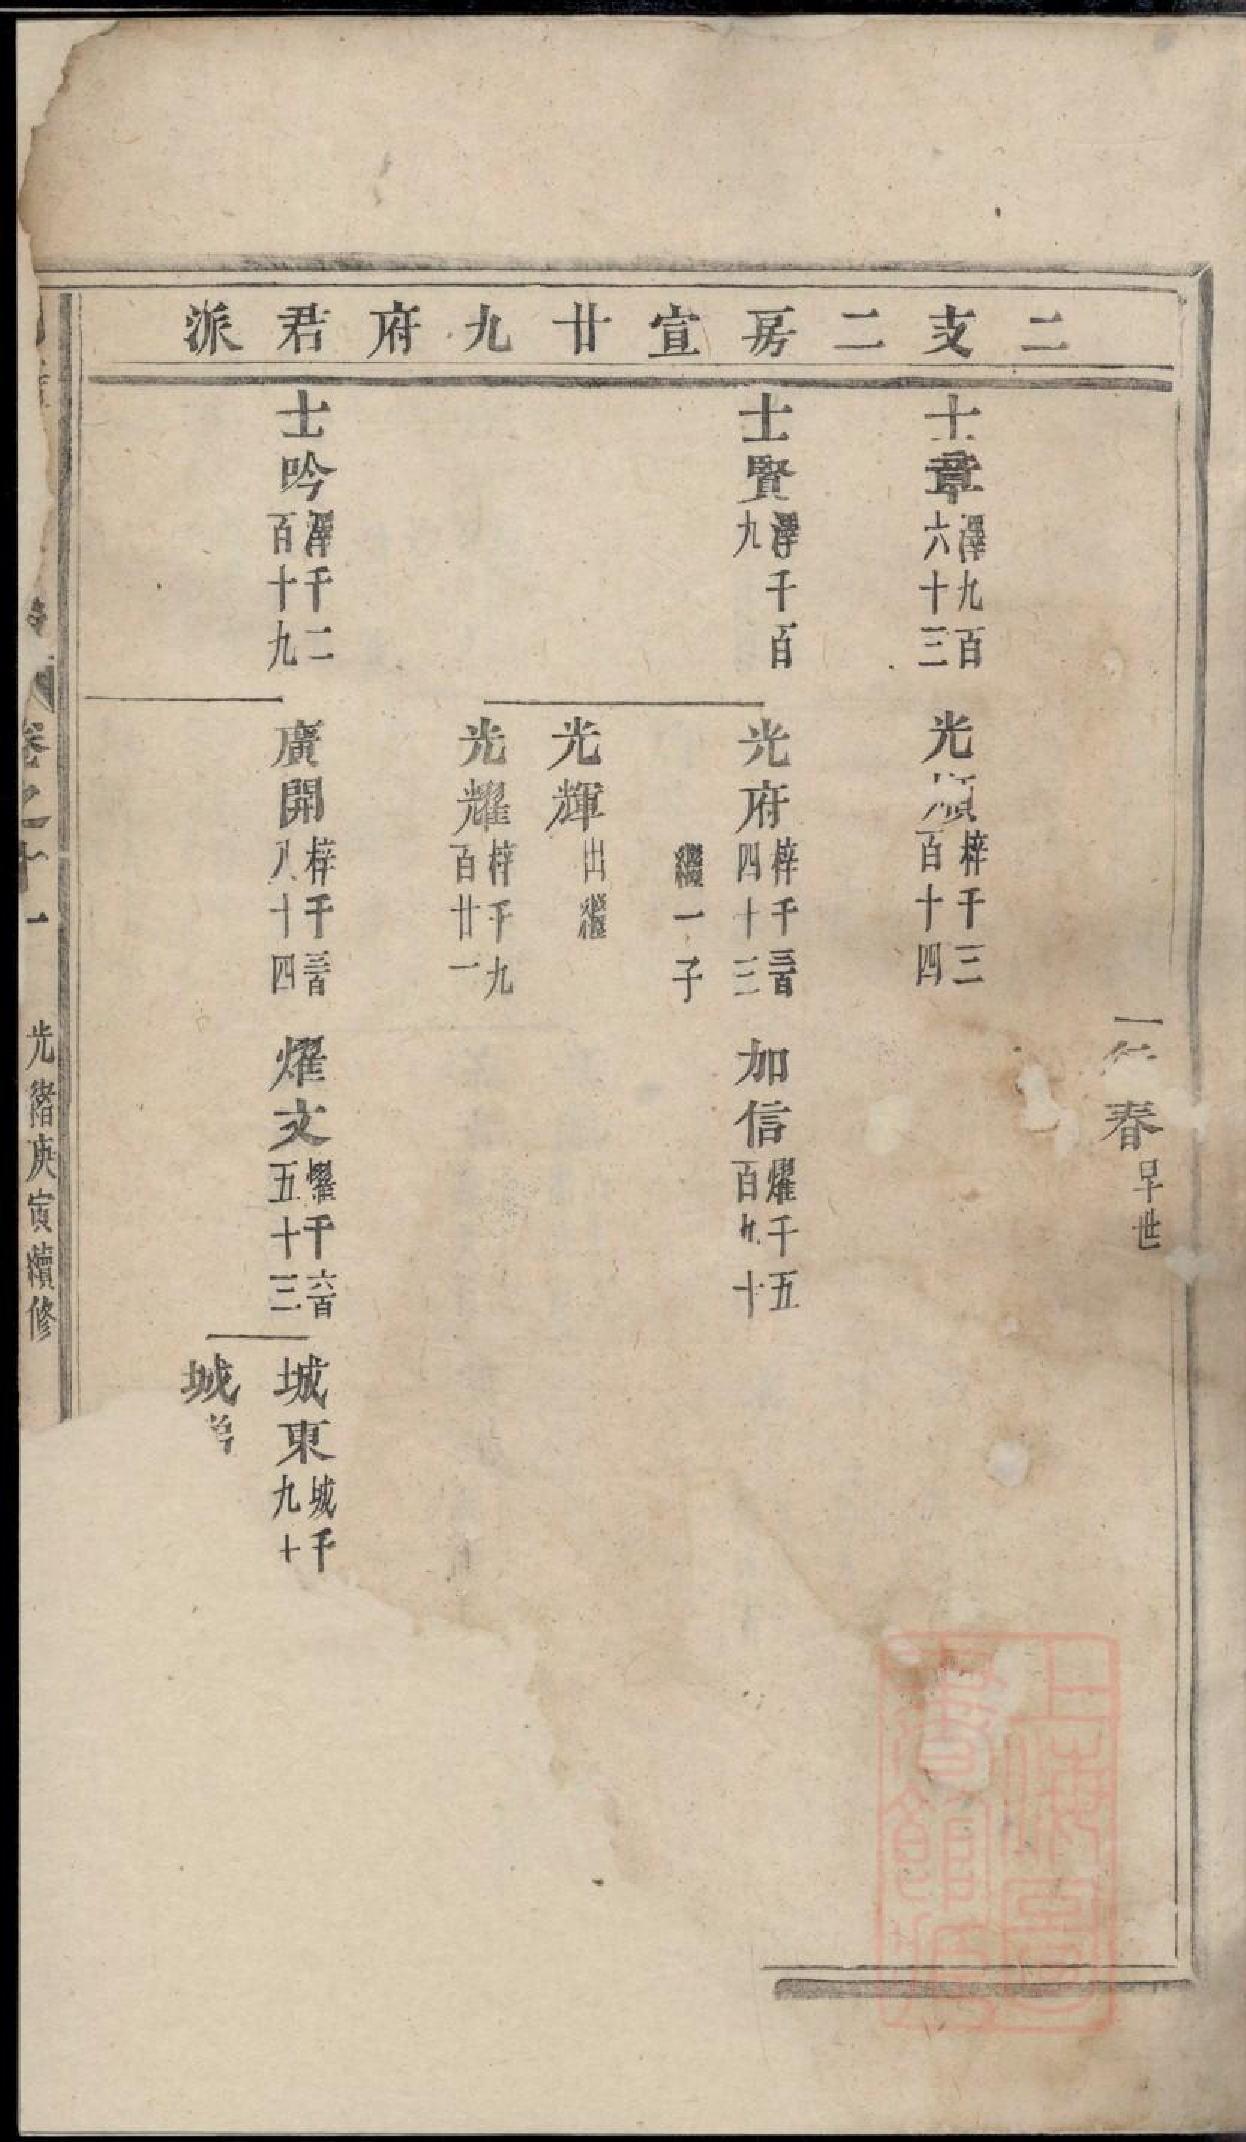 二支二房宣廿九府君派
春早世
士章澤九百六十三
光 梓千三百十四
士賢澤千百九
光府梓千三百四十三
加信燿千五百九十
繼一子
光輝出繼
光耀梓千九百廿一
士吟澤千二百十九
廣開梓千三百八十四
燿文燿千六百五十三
城東城千九十
城
卷之十一
光緒庚寅續修
上海圖書館藏